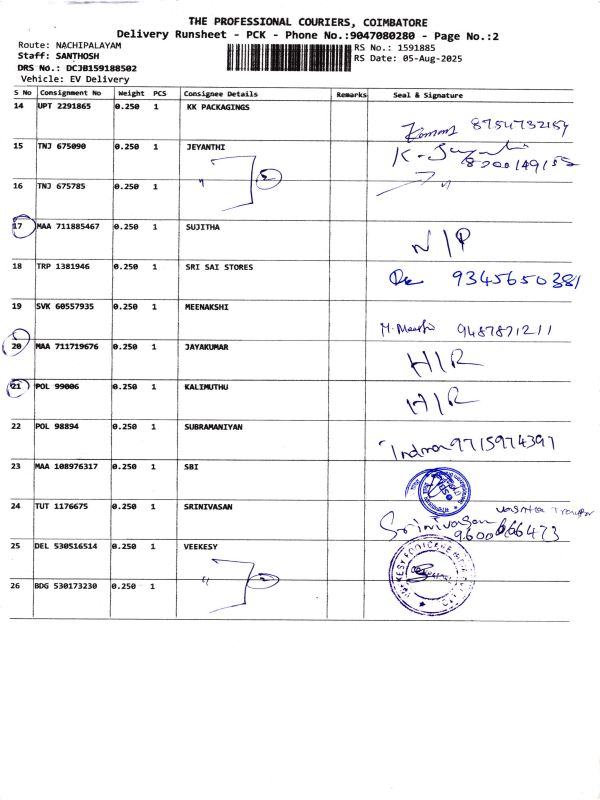 THE PROFESSIONAL COURIERS, COIMBATORE
Delivery Runsheet - PCK - Phone No.:9047080280 - Page No.:2
Route: NACHIPALAYAM
Staff: SANTHOSH
DRS No.: DCJB159188502
Vehicle: EV Delivery
RS No.: 1591885
RS Date: 05-Aug-2025
S No Consignment No Weight PCS Consignee Details Remarks Seal & Signature
14 UPT 2291865 0.250 1 KK PACKAGINGS 8754732159
15 TNJ 675090 0.250 1 JEYANTHI 8200149155
16 TNJ 675785 0.250 1 "
17 MAA 711885467 0.250 1 SUJITHA N/P
18 TRP 1381946 0.250 1 SRI SAI STORES 9345650381
19 SVK 60557935 0.250 1 MEENAKSHI 9487871211
20 MAA 711719676 0.250 1 JAYAKUMAR H/R
21 POL 99006 0.250 1 KALIMUTHU H/R
22 POL 98894 0.250 1 SUBRAMANIYAN 9715974391
23 MAA 108976317 0.250 1 SBI
24 TUT 1176675 0.250 1 SRINIVASAN Srinivasan
25 DEL 530516514 0.250 1 VEEKESY
26 BDG 530173230 0.250 1 "